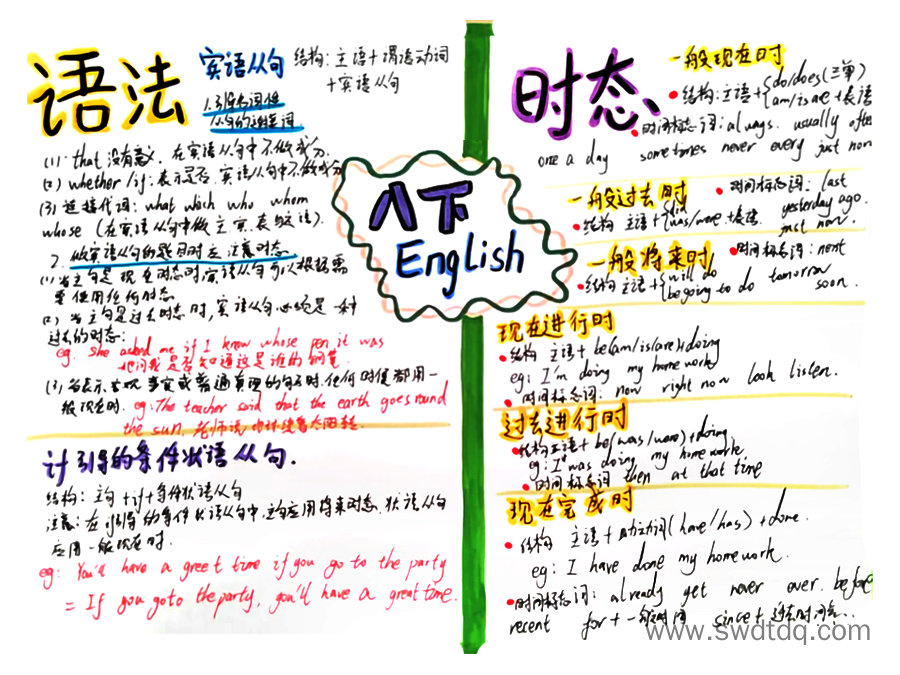 语法
宾语从句
结构：主语+谓语动词
+宾语从句
1.引导名词性
从句的连接词
(1)：that 没有意义，在宾语从句中不做成分.
(2) whether/if：表示是否，宾语从句中不做成分
(3) 连接代词：what which who whom
whose (在宾语从句中做主.宾.表.定语).
2.做宾语从句的题目时应注意时态.
(1)当主句是现在时态时,宾语从句可以根据需
要使用任何时态
(2) 当主句是过去时态时,宾语从句必须是一种
过去的时态：
eg. she asked me if I knew whose pen it was
他问我是否知道这是谁的钢笔.
(3) 当表示客观事实或普遍真理的句子时.任何时候都用一
般现在时.
eg:The teacher said that the earth goes round
the sun.老师说地球绕着太阳转.
计引导的条件状语从句.
结构：主句+if+条件状语从句
注意：在if引导的条件状语从句中,主句应用将来时态.状语从句
应用一般现在时.
eg: You'll have a greet time if you go to the party
= If you goto the party, you'll have a great time.
八下
English
时态、
一般现在时
结构:主语+{do/does(三单)
am/is are +表语
时间标志词:always. usually often
one a day sometimes never every just now
一般过去时
时间标志词：last
yesterday ago.
just now.
结构 主语+{did
was/were +表语.
一般将来时
时间标志词：next
tomorrow
soon.
结构主语+{will do
be going to do
现在进行时
结构 主语+be(am/is/are)+doing
eg: I'm doing my homework
时间标志词: now right now look listen.
过去进行时
结构主语+be(was/were)+doing
eg: I was doing my homework.
时间标志词 then at that time
现在完成时
结构 主语+助动词(have/has)+done.
eg: I have done my homework.
时间标志词: already yet never ever. before
recent for+一段时间 since+过去时间点...
www.swdtdq.com